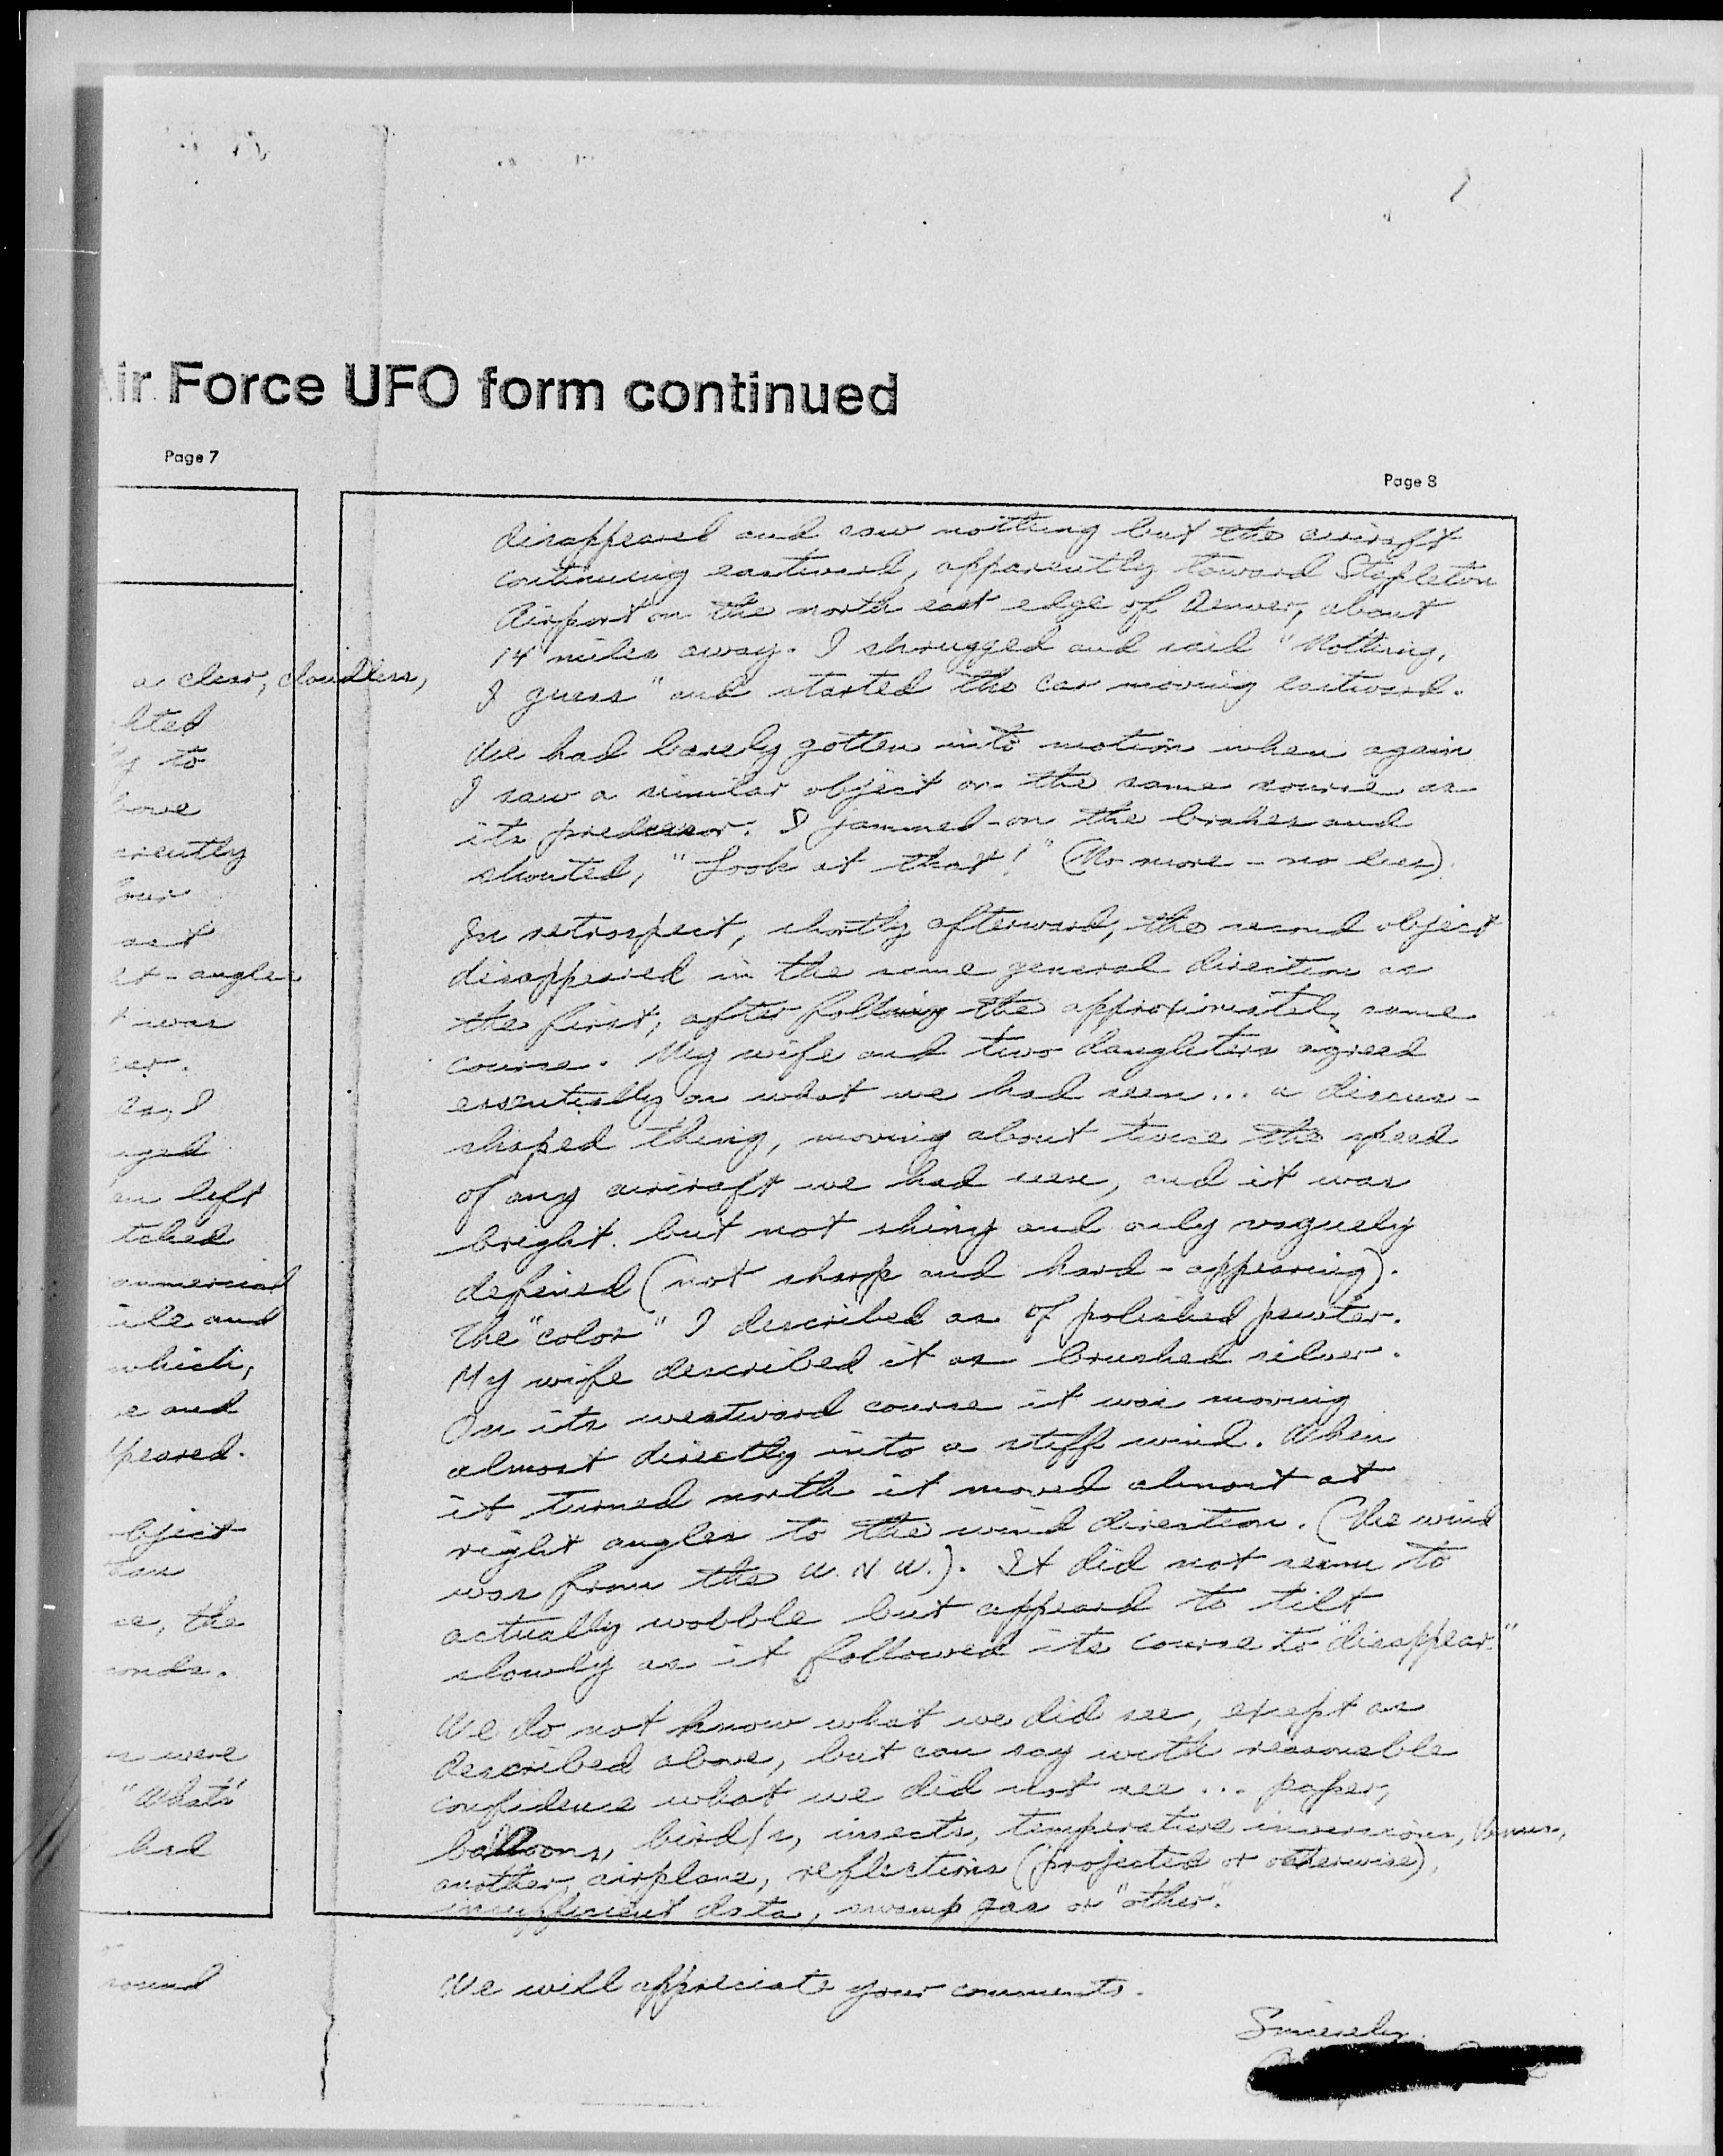 Air Force UFO form continued
Page 7
a clear, cloudless,
lted
y to
have
arently
our
act
et-angles
t was
car.
es, I
nged
an left
tched
ommercial
ile and
which,
e and
ppeared.
bject
han
ce, the
onds.
s were
"What's
had
round
Page 8
disappeared and saw nothing but the aircraft
continuing eastward, apparently toward Stapleton
Airport on the north east edge of Denver, about
14 miles away. I shrugged and said "Nothing,
I guess" and started the car moving eastward.
We had barely gotten into motion when again
I saw a similar object on the same course as
its predcessor. I jammed-on the brakes and
shouted, "Look at that!" (No more - no less).
In retrospect, shortly afterward, the second object
disappeared in the same general direction as
the first, after following the approximately same
course. My wife and two daughters agreed
essentially on what we had seen... a discus-
shaped thing, moving about twice the speed
of any aircraft we had seen, and it was
bright but not shiny and only vaguely
defined (not sharp and hard-appearing).
The "color" I described as of polished pewter.
My wife described it as brushed silver.
On its westward course it was moving
almost directly into a stiff wind. When
it turned north it moved almost at
right angles to the wind direction. (The wind
was from the W.N.W.). It did not seem to
actually wobble but appeard to tilt
slowly as it followed its course to "disappear."
We do not know what we did see, except as
described above, but can say with reasonable
confidence what we did not see ... paper,
balloons, bird/s, insects, temperature inversions, Venus,
another airplane, reflections (projected or otherwise),
insufficient data, swamp gas or "other."
We will appreciate your comments.
Sincerely,